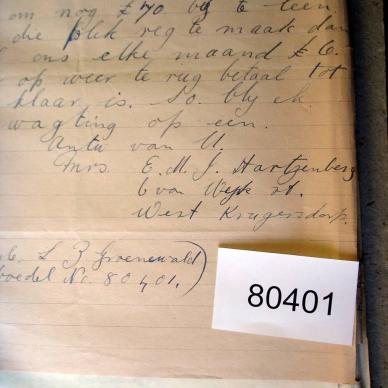 om nog £70 by te leen
die plek reg te maak dan
ons elke maand £6.
op weer te rug betaal tot
klaar is. So bly ek
wagting op een.
Antw van U.
Mrs. E. M. J. Hartzenberg
6 von Wyk st.
West Krugersdorp.
L B Groenewald
boedel No. 80401.)
80401